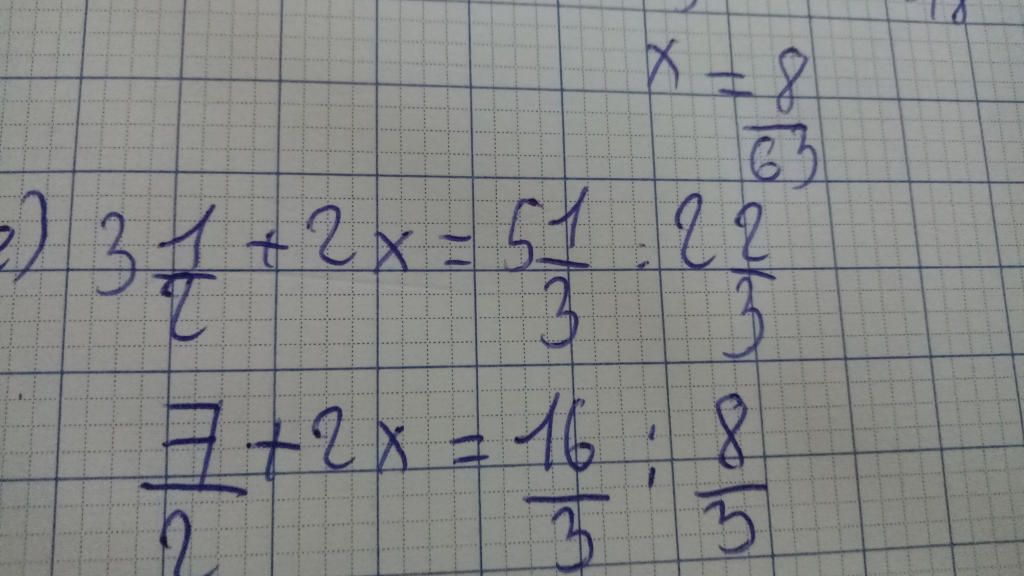 x = 8/63
e) 3 1/2 + 2x = 5 1/3 : 2 2/3
7/2 + 2x = 16/3 : 8/3